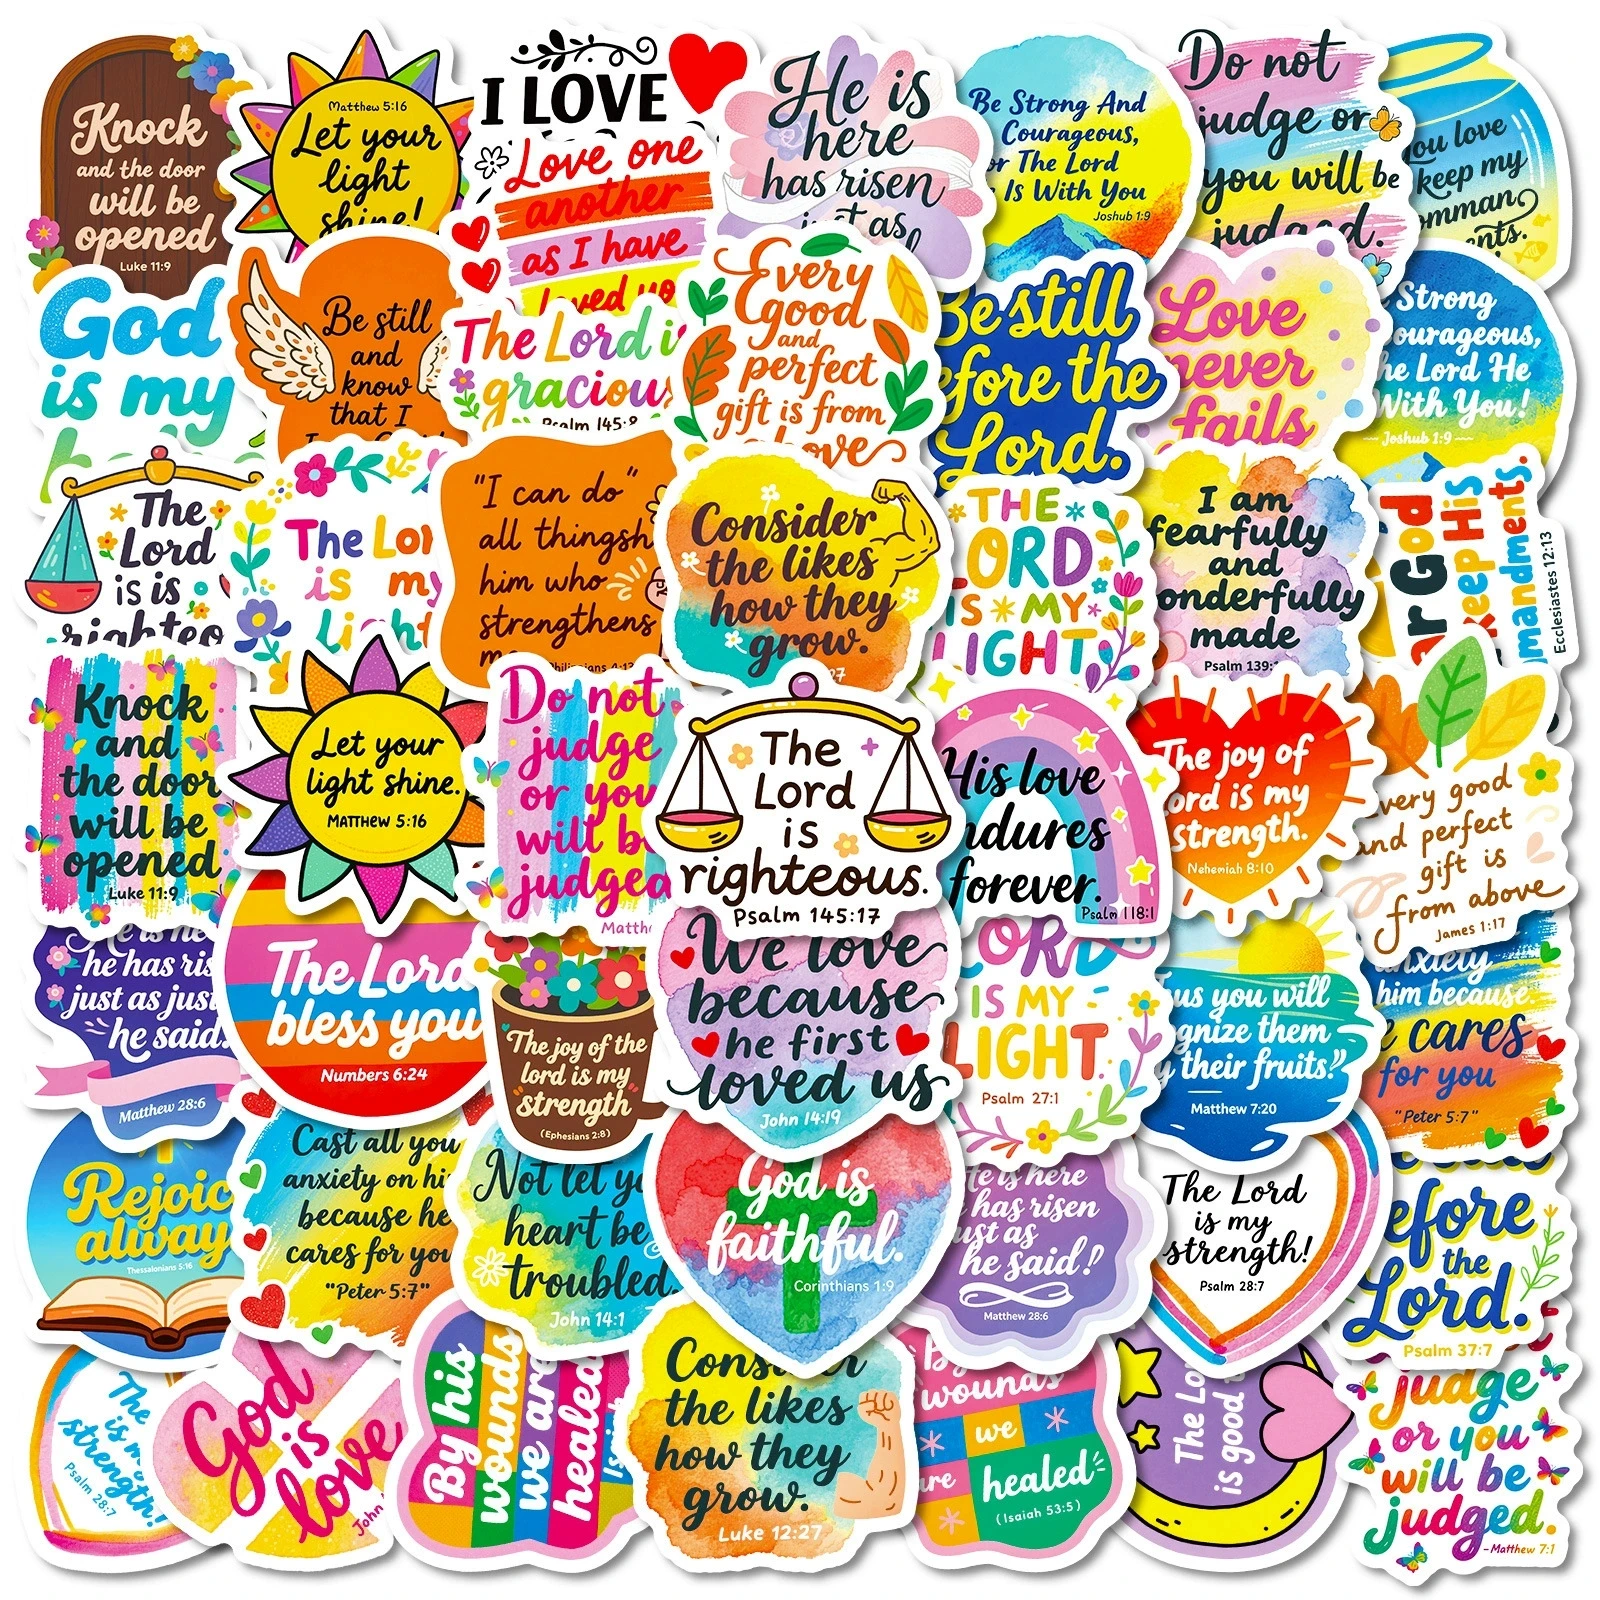 Knock
and the door
will be
opened
Luke 11:9
Matthew 5:16
Let your
light
shine!
I LOVE
Love one
another
as I have
loved you
He is
here
has risen
just as
Be Strong And
Courageous,
or The Lord
Is With You
Joshub 1:9
Do not
judge or
you will be
judged.
you love
keep my
omman
ents.
God
is my
Be still
and
know
that I
The Lord is
gracious
Psalm 145:8
Every
good
and
perfect
gift is from
above
Be still
efore the
Lord.
Love
never
fails
Strong
ourageous,
he Lord He
With You!
Joshub 1:9
The
Lord
is is
righteo
The Lor
is my
Light
"I can do"
all thingsh
him who
strengthens
me
Philippians 4:13
Consider
the likes
how they
grow.
27
THE
LORD
IS MY
LIGHT
I am
fearfully
and
onderfully
made
Psalm 139:
ar God
keep His
mandments.
Ecclesiastes 12:13
Knock
and
the door
will be
opened
Luke 11:9
Let your
light shine.
MATTHEW 5:16
Do not
judge
or you
will be
judged
Matth
The
Lord
is
righteous.
Psalm 145:17
His love
ndures
forever.
Psalm 118:1
The joy of
ord is my
strength.
Nehemiah 8:10
very good
and perfect
gift is
from above
James 1:17
He is he
he has ris
just as jus
he said.
Matthew 28:6
The Lord
bless you
Numbers 6:24
The joy of the
lord is my
strength
(Ephesians 2:8)
We love
because
he first
loved us
John 14:19
LORD
IS MY
LIGHT.
Psalm 27:1
us you will
gnize them
y their fruits."
Matthew 7:20
anxiety
him because
e cares
for you
"Peter 5:7"
Rejoic
alway
Thessalonians 5:16
Cast all you
anxiety on hi
because he
cares for you
"Peter 5:7"
Not let yo
heart be
troubled.
John 14:1
God is
faithful.
Corinthians 1:9
He is here
has risen
ust as
he said!
Matthew 28:6
The Lord
is my
strength!
Psalm 28:7
efore
the
Lord.
Psalm 37:7
The
is my
strength!
Psalm 28:7
God
is
love
John
By his
wounds
we are
healed
Isai
Consider
the likes
how they
grow.
Luke 12:27
By
wounds
we
are
healed
(Isaiah 53:5)
The Lo
is good
judge
or you
will be
judged.
-Matthew 7:1